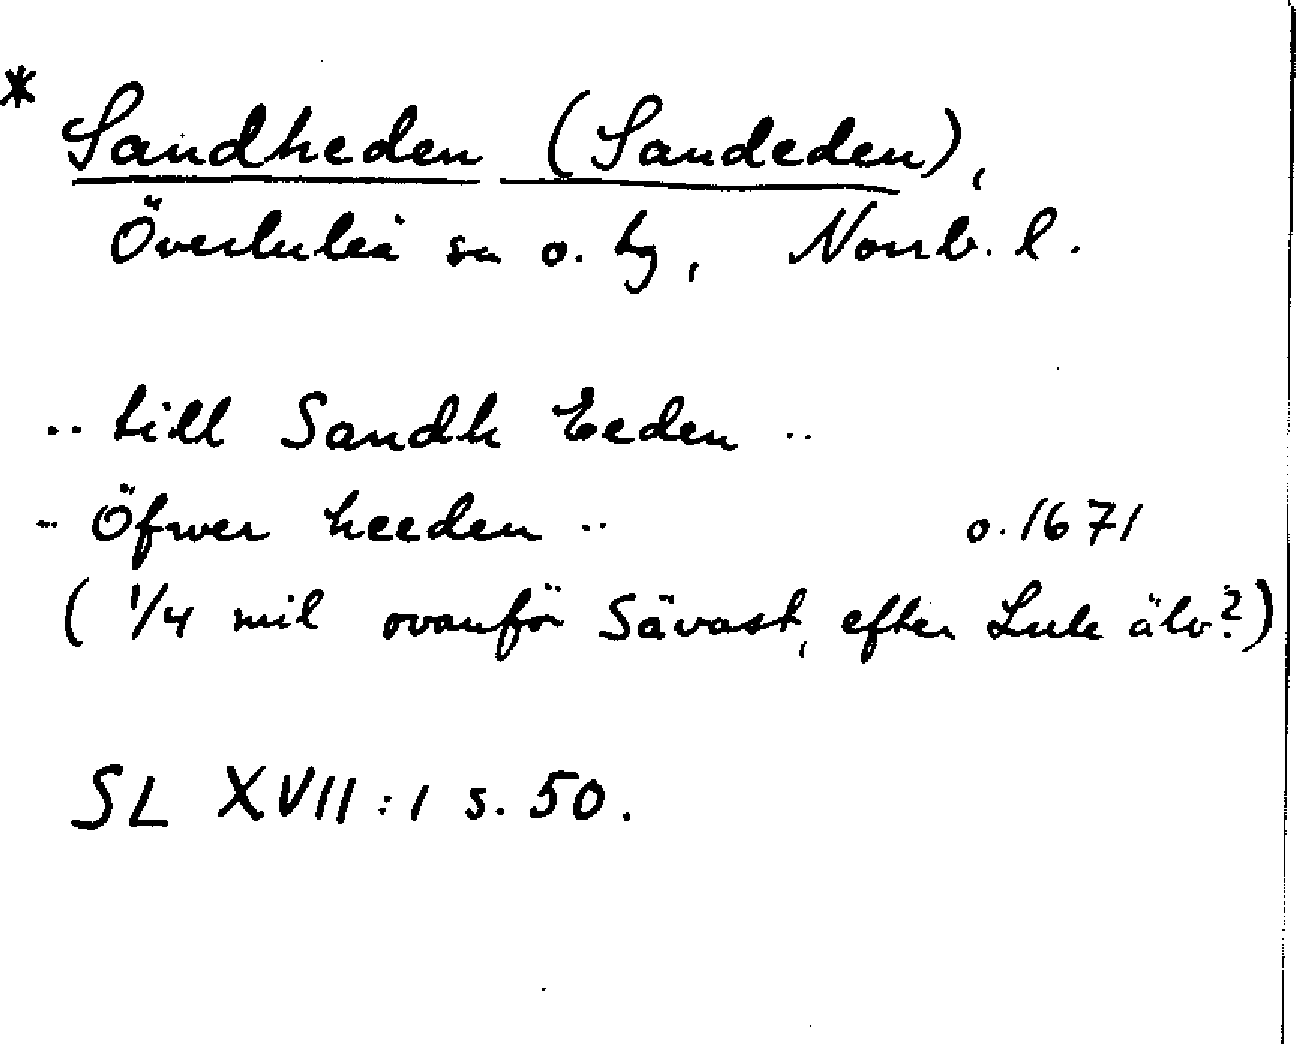 * Sandheden (Sandeden),
Överluleå sn o. tg, Norrb. l.
.. till Sandh Eeden ..
.. Öfwer heeden .. o. 1671
( 1/4 mil ovanför Sävast, efter Lule älv?)
SL XVII:1 s. 50.